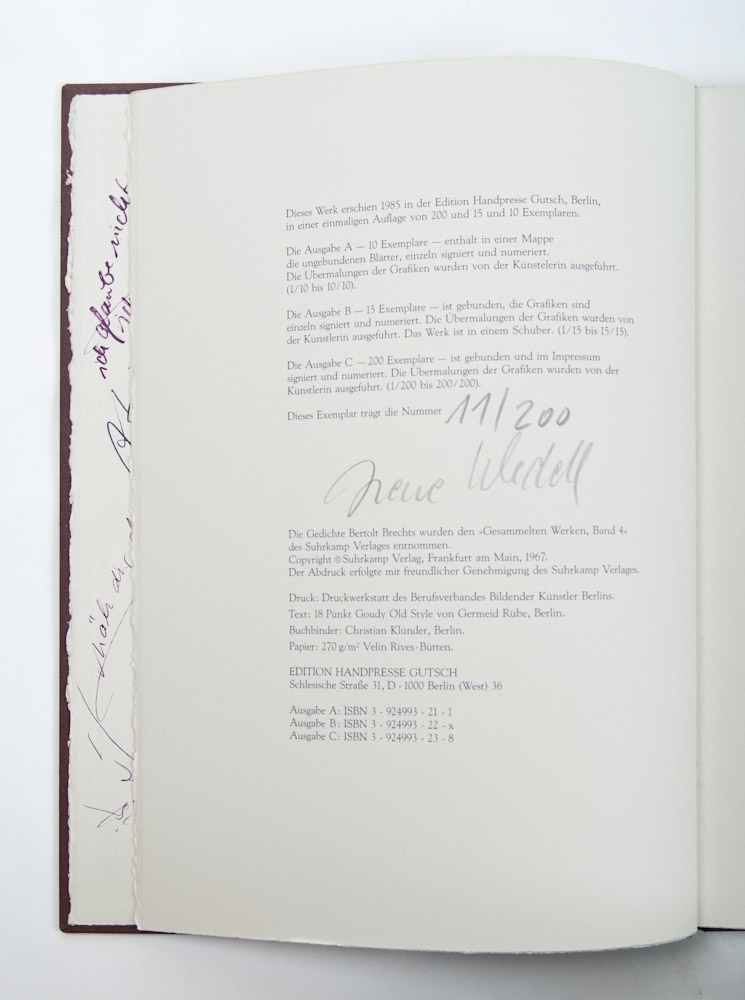 Dieses Werk erschien 1985 in der Edition Handpresse Gutsch, Berlin,
in einer einmaligen Auflage von 200 und 15 und 10 Exemplaren.
Die Ausgabe A — 10 Exemplare — enthält in einer Mappe
die ungebundenen Blätter, einzeln signiert und numeriert.
Die Übermalungen der Grafiken wurden von der Künstelerin ausgeführt.
(1/10 bis 10/10).
Die Ausgabe B — 15 Exemplare — ist gebunden, die Grafiken sind
einzeln signiert und numeriert. Die Übermalungen der Grafiken wurden von
der Künstlerin ausgeführt. Das Werk ist in einem Schuber. (1/15 bis 15/15).
Die Ausgabe C — 200 Exemplare — ist gebunden und im Impressum
signiert und numeriert. Die Übermalungen der Grafiken wurden von der
Künstlerin ausgeführt. (1/200 bis 200/200).
Dieses Exemplar trägt die Nummer 11/200
Irene Wedell
Die Gedichte Bertolt Brechts wurden den »Gesammelten Werken, Band 4«
des Suhrkamp Verlages entnommen.
Copyright © Suhrkamp Verlag, Frankfurt am Main, 1967.
Der Abdruck erfolgte mit freundlicher Genehmigung des Suhrkamp Verlages.
Druck: Druckwerkstatt des Berufsverbandes Bildender Künstler Berlins.
Text: 18 Punkt Goudy Old Style von Germeid Rübe, Berlin.
Buchbinder: Christian Klünder, Berlin.
Papier: 270 g/m² Velin Rives-Bütten.
EDITION HANDPRESSE GUTSCH
Schlesische Straße 31, D - 1000 Berlin (West) 36
Ausgabe A: ISBN 3 - 924993 - 21 - 1
Ausgabe B: ISBN 3 - 924993 - 22 - x
Ausgabe C: ISBN 3 - 924993 - 23 - 8
ich glaube nicht